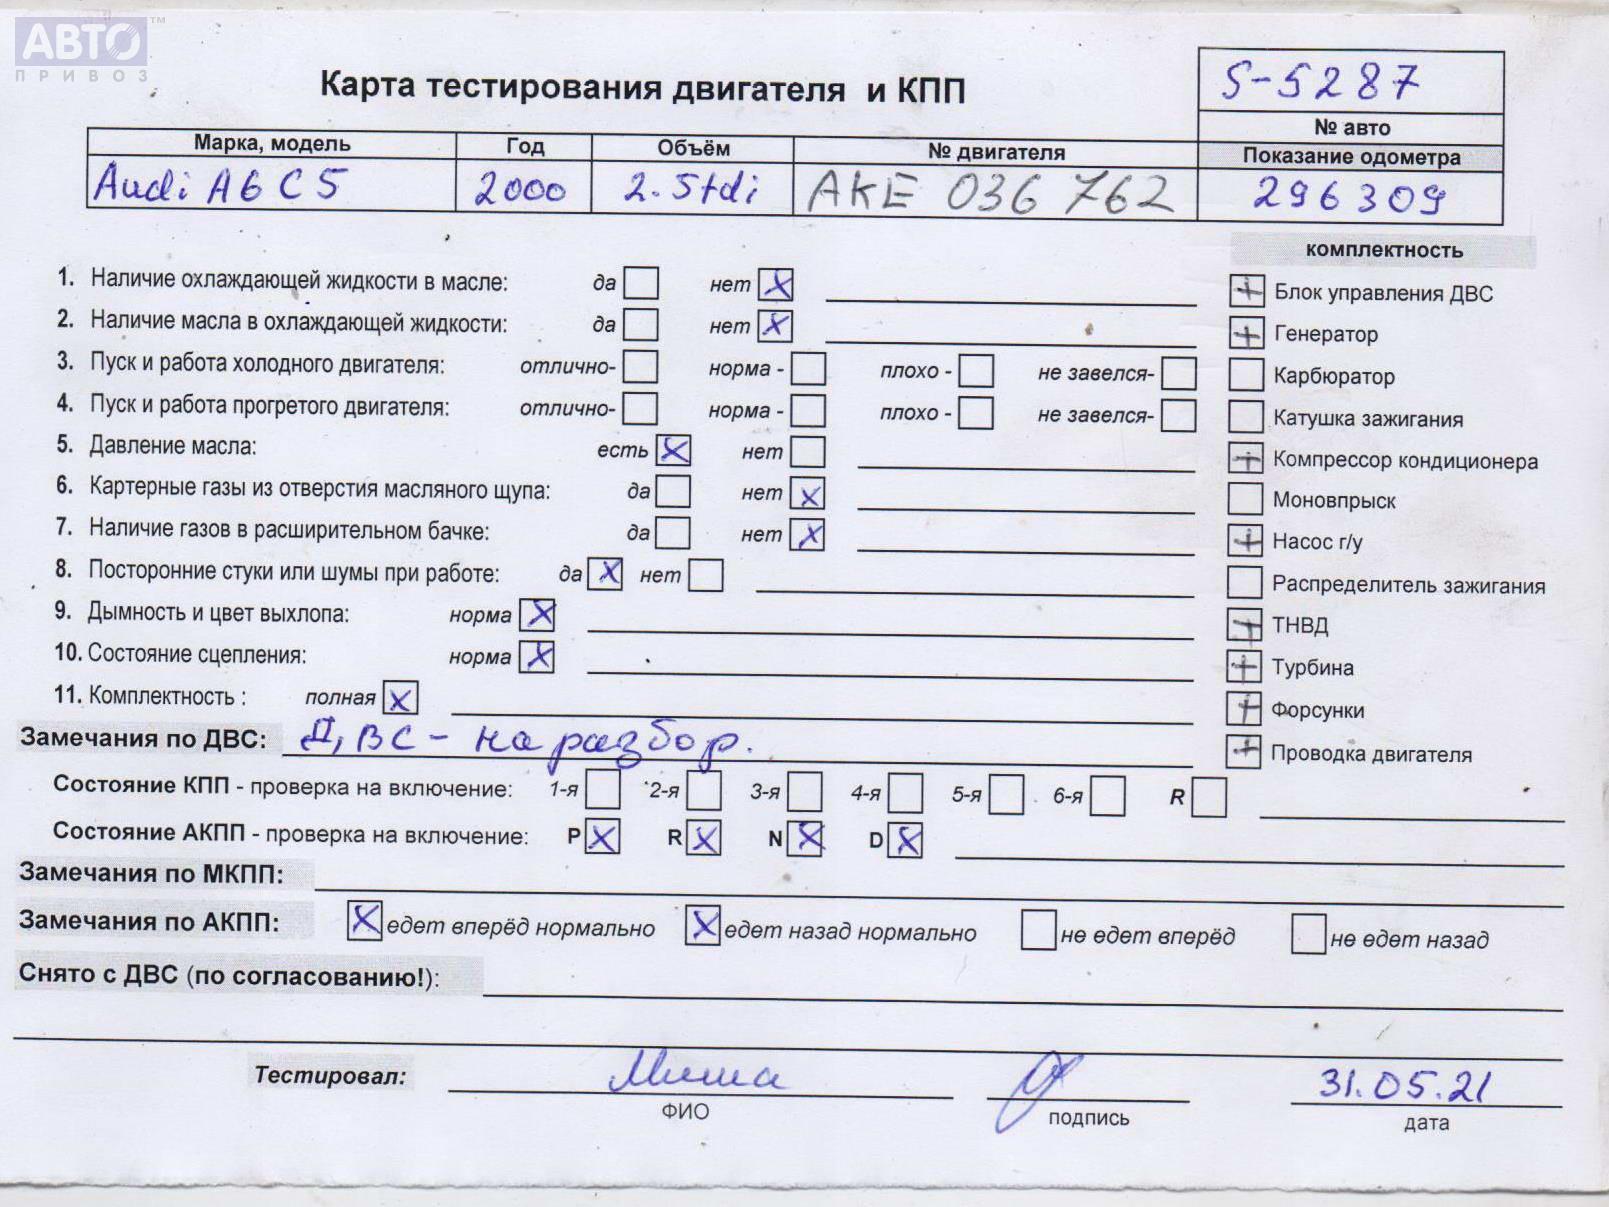 АВТО™
ПРИВОЗ
Карта тестирования двигателя и КПП
S-5287
№ авто
Марка, модель Год Объём № двигателя Показание одометра
Audi A6 C5 2000 2.5tdi AKE 036 762 296309
комплектность
1. Наличие охлаждающей жидкости в масле: да нет X
Блок управления ДВС
2. Наличие масла в охлаждающей жидкости: да нет X
Генератор
3. Пуск и работа холодного двигателя: отлично- норма - плохо - не завелся-
Карбюратор
4. Пуск и работа прогретого двигателя: отлично- норма - плохо - не завелся-
Катушка зажигания
5. Давление масла: есть X нет
Компрессор кондиционера
6. Картерные газы из отверстия масляного щупа: да нет X
Моновпрыск
7. Наличие газов в расширительном бачке: да нет X
Насос г/у
8. Посторонние стуки или шумы при работе: да X нет
Распределитель зажигания
9. Дымность и цвет выхлопа: норма X
ТНВД
10. Состояние сцепления: норма X
Турбина
11. Комплектность : полная X
Форсунки
Замечания по ДВС: ДВС - на разбор.
Проводка двигателя
Состояние КПП - проверка на включение: 1-я 2-я 3-я 4-я 5-я 6-я R
Состояние АКПП - проверка на включение: P X R X N X D X
Замечания по МКПП:
Замечания по АКПП: X едет вперёд нормально X едет назад нормально не едет вперёд не едет назад
Снято с ДВС (по согласованию!):
Тестировал: Миша 31.05.21
ФИО подпись дата